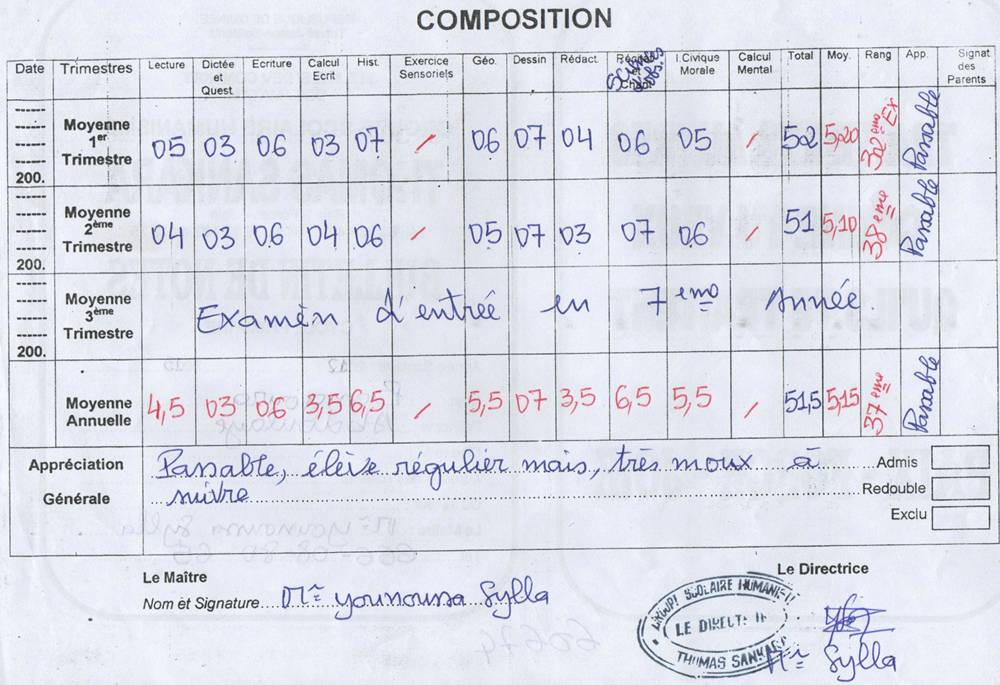 COMPOSITION
Date Trimestres Lecture Dictée et Quest Ecriture Calcul Ecrit Hist. Exercice Sensoriels Géo. Dessin Rédact. I.Civique Morale Calcul Mental Total Moy. Rang App. Signat des Parents
Moyenne 1er Trimestre 05 03 06 03 07 / 06 07 04 06 05 / 52 5,20 32ème Ex Passable
200.
Moyenne 2ème Trimestre 04 03 06 04 06 / 05 07 03 07 06 / 51 5,10 38ème Passable
200.
Moyenne 3ème Trimestre Examèn d'entréé en 7ème Année
200.
Moyenne Annuelle 4,5 03 06 3,5 6,5 / 5,5 07 3,5 6,5 5,5 / 51,5 5,15 37ème Passable
Appréciation Générale Passable, élèze régulier mais, très moux à
suivre
Admis
Redouble
Exclu
Le Maître
Nom èt Signature Mr younoussa Sylla
Le Directrice
GROUPE SCOLAIRE HUMANI
LE DIRECT
THOMAS SANKA
Mr Sylla